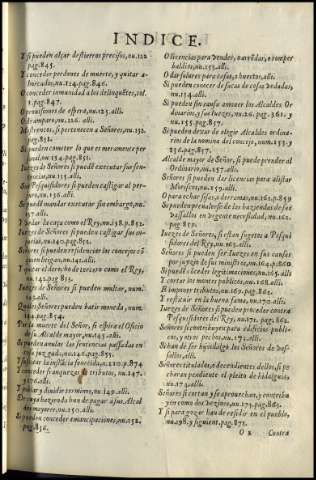 INDICE.
Y si pueden alçar destierros precisos, nu.122
pag.845.
Y conceder perdones de muerte, y quitar a-
horcados, nu.124.pag.846.
O conceder inmunidad a los delinquētes, col.
1.pag.847.
O prouisiones de espera, nu.125.alli.
O de amparo, nu.126. alli.
Mostrencos, si pertenecen a Señores, nu.132.
pag.851.
Si pueden cometer lo que es meramente per-
mitido, nu.134.pag.851.
Iuezes de Señores si puedē executar sus sen-
tencias, nu.135.alli.
Sus Pesquisidores si pueden castigar al per-
juro, nu.136.alli.
Si puedē mandar executar sin embargo, nu.
137.alli.
Y vedar la caça como el Rey, nu.138.p.852.
Iuezes de Señores si pueden castigar sus mi-
nistros, nu.140.pag.852.
Señores si pueden residenciar los concejos cō
cumbengas, nu.141.alli.
Y quitar el derecho de tercero como el Rey,
nu.142.pag.853.
Iuezes de Señores si pueden multar, num.
143.alli.
Quales Señores pueden batir moneda, num.
144.pag.854.
Por la muerte del Señor, si espira el Oficio
de su Alcalde mayor, nu.145.alli.
Si pueden anular las sentencias passadas en
cosa juzgada, nu.146.pag.855.
Y suplir la instācia fenecida, n.120.p.874
Y conceder franquezas de tributos, nu.147.
y 176.alli.
Y quitar y añadir terminos, nu.149.alli.
De cuya hazienda han de pagar a sus Alcal-
des mayores, nu.150.alli.
Si pueden conceder emancipaciones, nu.152
pag.856.
O licencias para vender, o arrēdar, o romper
baldios, nu.153.alli.
O dar solares para casas, o huertos, alli.
Si pueden conocer de sacas de cosas vedadas,
nu.154.alli.
Si pueden sin causa remouer los Alcaldes Or
dinarios, y sus Iuezes, nu.26. pag. 361. y
155.pag.857.
Si pueden dexar de elegir Alcaldes ordina-
rios de la nomina del concejo, num.255. y
256.pag.857.
Alcalde mayor de Señor, si puede prender al
Ordinario, nu.157.alli.
Señores si pueden dar licencias para alistar
Moriscos, nu.159.alli.
O para echar sisas, o derramas, nu.161.p.859
Si pueden prevalerse de las haziendas de sus
vassallos en vrgente necessidad, nu.162.
pag.861.
Iuezes de Señores, si estan sugetos a Pesqui
sidores del Rey, nu.163.alli.
Señores si pueden ser Iuezes en sus causas
por juyzio de sus ministros, nu.164.p.860
Si puedē obedecer legitimaciones, nu.165.alli.
Y cortar los montes publicos, nu.168.alli.
Si imponer tributos, nu.169. pag.862.
Y restituir en la buena fama, nu.170.alli.
Iuezes de Señores, si pueden proceder contra
Pesquisidores del Rey, nu.171.pag.862.
Señores si contribuyen para edificios publi-
cos, y otros pechos, nu.172. alli.
Si han de ser hijosdalgo los Señores de vas-
sallos, alli.
Señores titulados, o descendientes dellos, si po
drian pendiente el pleito de hidalguia,
nu.174.alli.
Señores si cortan y se aprouechan, y contribu
yen como dos vezinos, nu.175.pag.863.
Y si para gozar han de residir en el pueblo,
nu.198.y siguient.pag.871.
O 2 Contra